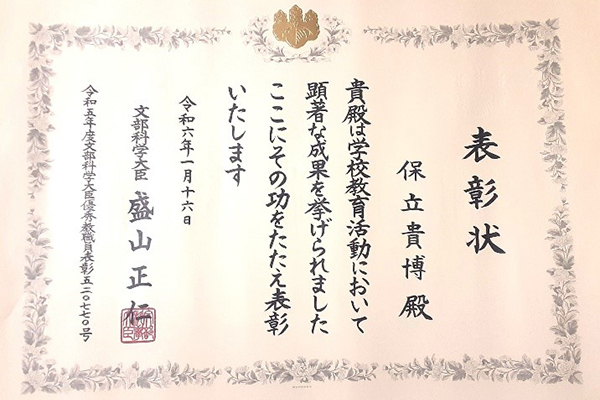 表彰状
保立貴博殿
貴殿は学校教育活動において
顕著な成果を挙げられました
ここにその功をたたえ表彰
いたします
令和六年一月十六日
文部科学大臣 盛山正仁
令和五年度文部科学大臣優秀教職員表彰五二〇七七〇号